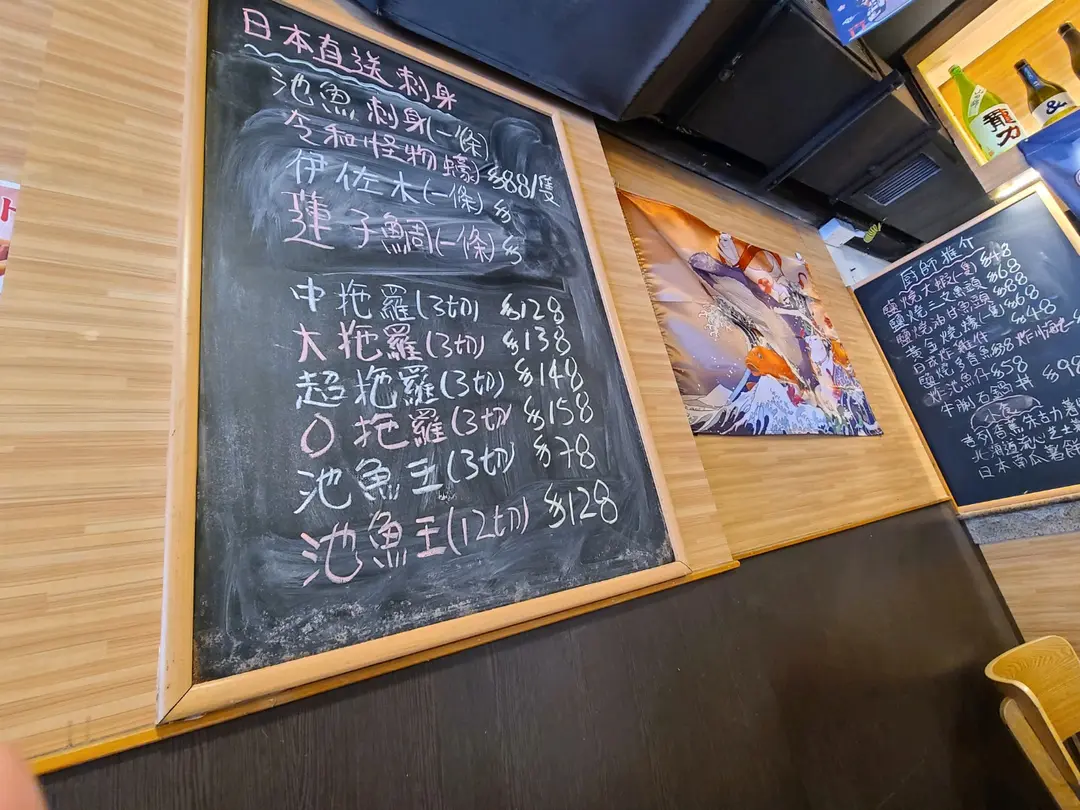 日本直送刺身
池魚刺身(一條)
令和怪物蠔 $88/隻
伊佐木(一條) $
蓮子鯛(一條) $
中拖羅(3切) $128
大拖羅(3切) $138
超拖羅(3切) $148
O拖羅(3切) $158
池魚王(3切) $78
池魚王(12切) $128
龍力
&
廚師推介
鹽燒大蝦(隻) $48
鹽燒三文魚頭 $68
鹽燒油甘魚頭 $88
黃金燒蠔(隻) $68
日式炸雞件 $48
鹽燒多春魚 $38
炸池魚仔 $58
牛脷石燒 $98
小食
北海道流心芝士
日本南瓜薯餅